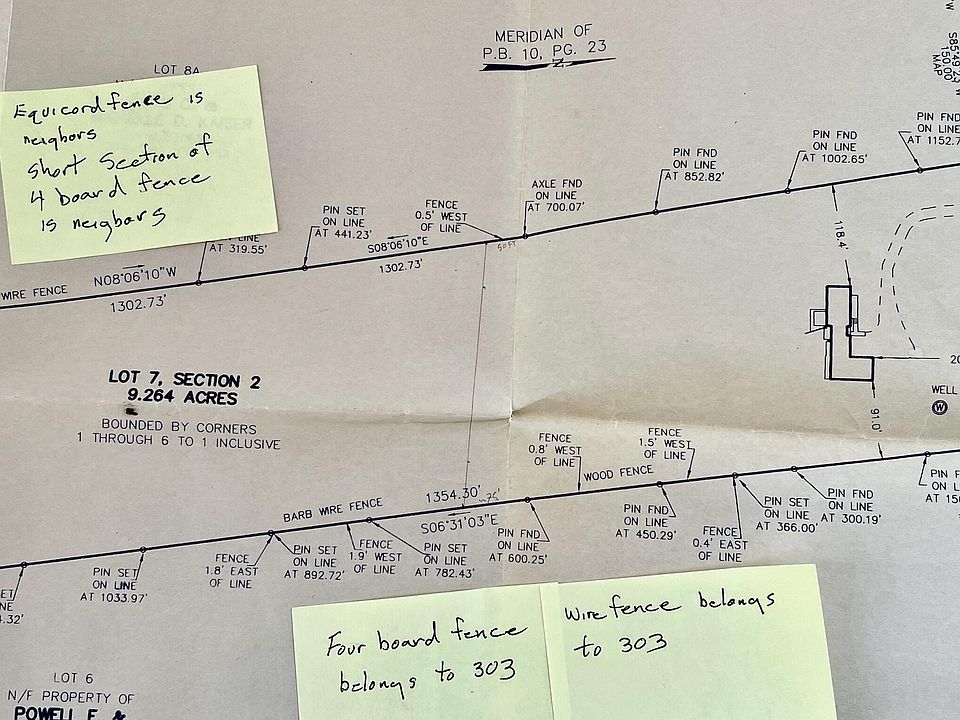 MERIDIAN OF
P.B. 10, PG. 23
N
S85°49'23"W
150.00'
MAP
LOT 8A
Equicord fence is
neigbors
short section of
4 board fence
is neigbors
LINE
AT 319.55'
PIN SET
ON LINE
AT 441.23'
FENCE
0.5' WEST
OF LINE
AXLE FND
ON LINE
AT 700.07'
PIN FND
ON LINE
AT 852.82'
PIN FND
ON LINE
AT 1002.65'
PIN FND
ON LINE
AT 1152.7
WIRE FENCE
N08°06'10"W
1302.73'
S08°06'10"E
1302.73'
50FT
118.4'
20
WELL
W
91.0'
LOT 7, SECTION 2
9.264 ACRES
BOUNDED BY CORNERS
1 THROUGH 6 TO 1 INCLUSIVE
FENCE
0.8' WEST
OF LINE
FENCE
1.5' WEST
OF LINE
WOOD FENCE
BARB WIRE FENCE
1354.30'
~75'
S06°31'03"E
PIN SET
ON LINE
AT 1033.97'
FENCE
1.8' EAST
OF LINE
PIN SET
ON LINE
AT 892.72'
FENCE
1.9' WEST
OF LINE
PIN SET
ON LINE
AT 782.43'
PIN FND
ON LINE
AT 600.25'
PIN FND
ON LINE
AT 450.29'
FENCE
0.4' EAST
OF LINE
PIN SET
ON LINE
AT 366.00'
PIN FND
ON LINE
AT 300.19'
PIN F
ON L
AT 150
ET
NE
4.32'
Four board fence
belongs to 303
Wire fence belongs
to 303
LOT 6
N/F PROPERTY OF
POWELL E. &